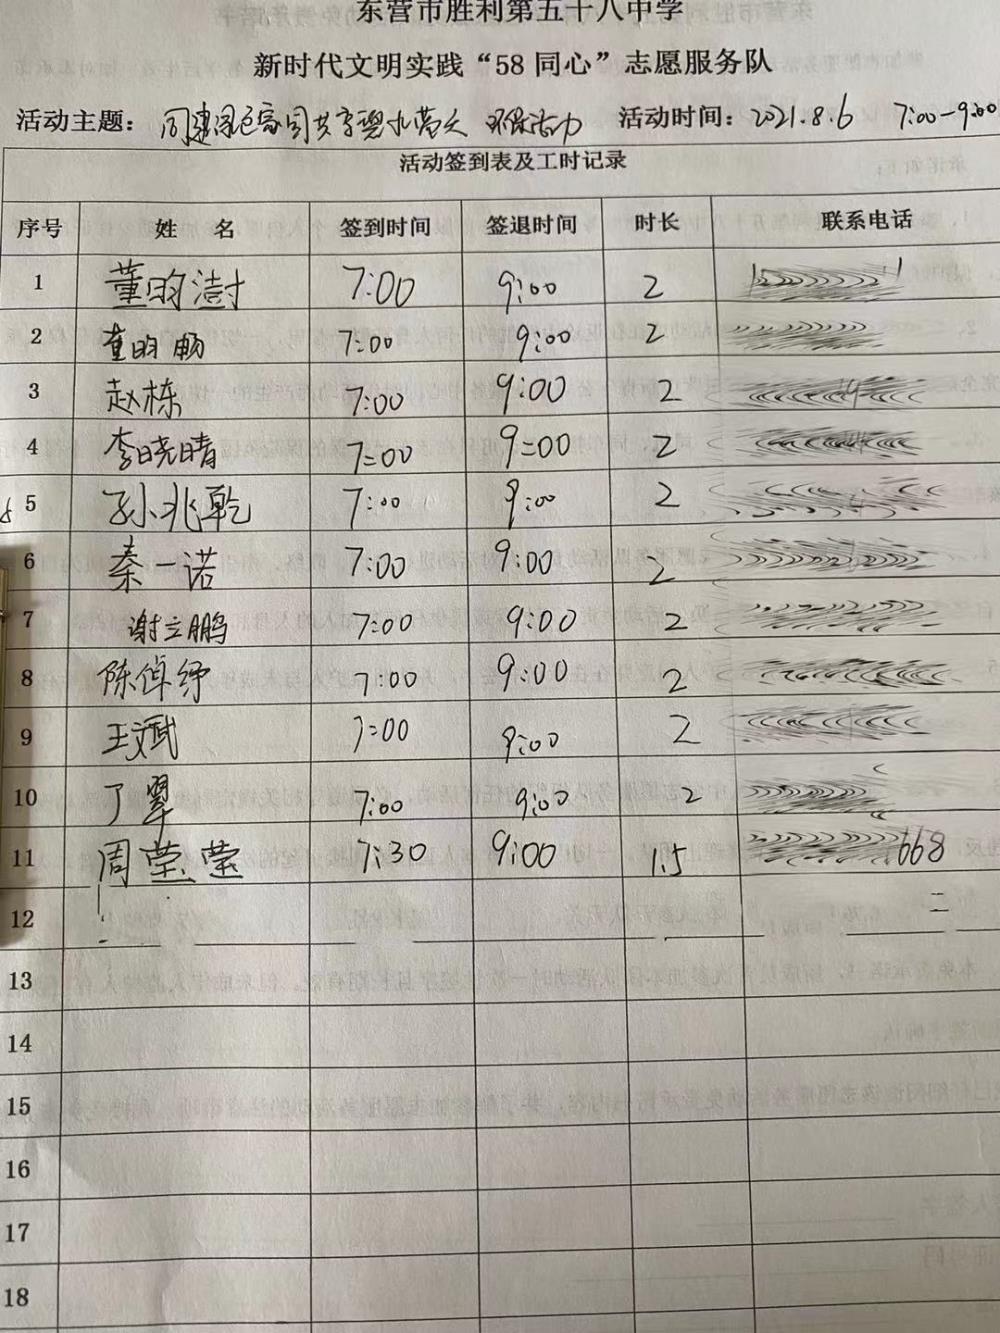 东营市胜利第五十八中学
新时代文明实践“58同心”志愿服务队
活动主题：同建绿色家园共享碧水蓝天 环保活动 活动时间：2021.8.6 7:00-9:00
活动签到表及工时记录
序号 姓 名 签到时间 签退时间 时长 联系电话
1 董昀澍 7:00 9:00 2
2 董昀 7:00 9:00 2
3 赵栋 7:00 9:00 2
4 李晓晴 7:00 9:00 2
5 孙兆乾 7:00 9:00 2
6 秦一诺 7:00 9:00 2
7 谢立鹏 7:00 9:00 2
8 陈倬纾 7:00 9:00 2
9 王文斌 7:00 9:00 2
10 丁翠 7:00 9:00 2
11 周莹莹 7:30 9:00 1.5 668
12
13
14
15
16
17
18